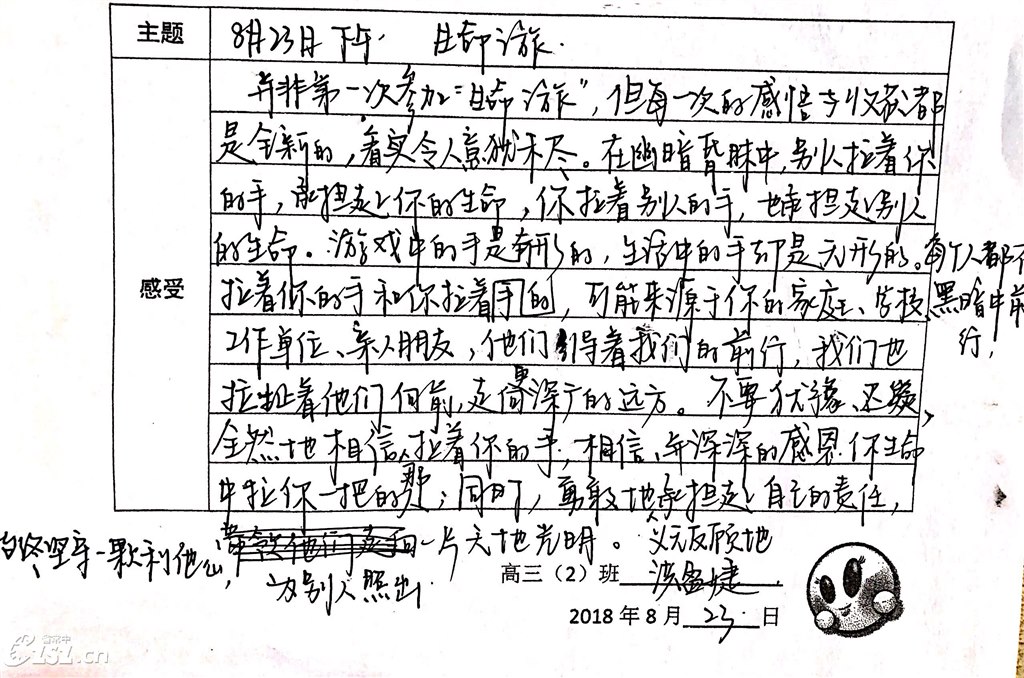 主题
8月23日下午 生命之旅
并非第一次参加“生命之旅”,但每一次的感悟与收获都
是全新的,着实令人意犹未尽。在幽暗昏昧中,别人拉着你
的手,承担起你的生命,你拉着别人的手,也承担起别人
的生命。游戏中的手是有形的,生活中的手却是无形的。每个人都在
感受
拉着你的手和你拉着手的,可能来源于你的家庭、学校、黑暗中前
行,
工作单位、亲人朋友,他们引导着我们的前行,我们也
拉扯着他们向前,走向更深广的远方。不要犹豫、迟疑,
全然地相信拉着你的手,相信、并深深的感恩你生命
中拉你一把的那;同时,勇敢地承担起自己的责任,
始终坚守一颗利他心,一片天地光明。义无反顾地
为别人照出
高三(2)班 洪盈婕
2018年8月 23 日